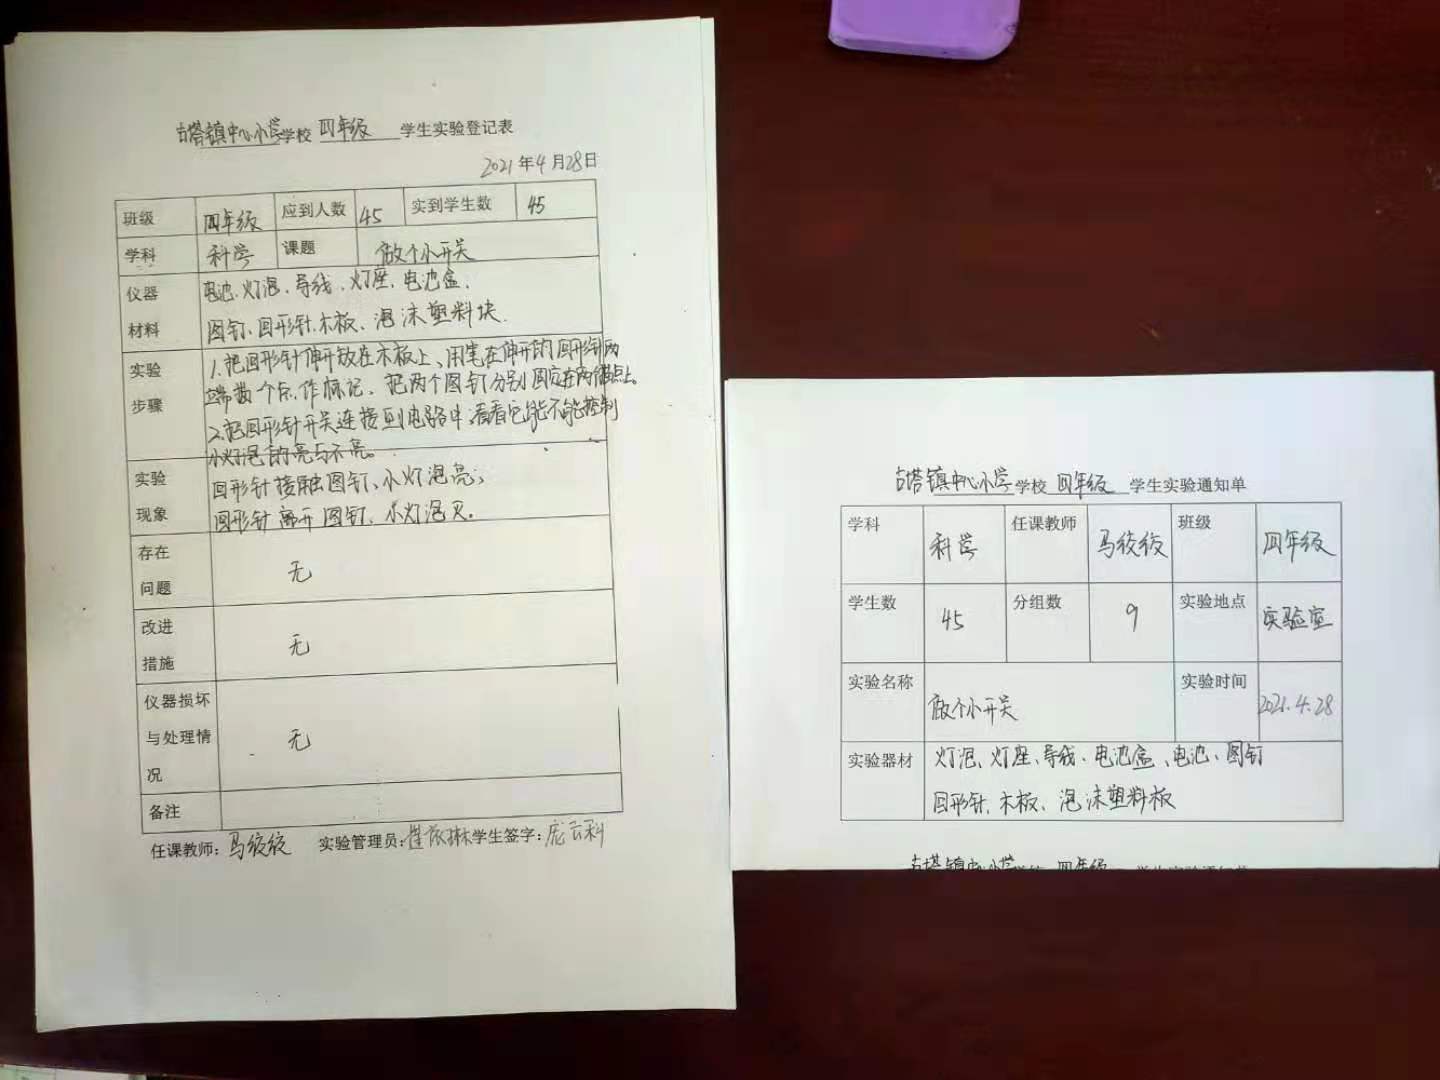 古塔镇中心小学学校 四年级 学生实验登记表
2021年4月28日
班级 四年级 应到人数 45 实到学生数 45
学科 科学 课题 做个小开关
仪器 电池、灯泡、导线、灯座、电池盒、
材料 图钉、回形针、木板、泡沫塑料块.
实验 1.把回形针伸开放在木板上、用笔在伸开的回形针两
步骤 端做个点作标记、把两个图钉分别固定在两个点上。
2.把回形针开关连接到电路中,看看它能不能控制
小灯泡的亮与不亮。
实验 回形针接触图钉、小灯泡亮;
现象 回形针离开图钉、小灯泡灭.
存在
问题 无
改进
措施 无
仪器损坏
与处理情 无
况
备注
任课教师:马纹纹 实验管理员: 学生签字:庞云科
古塔镇中心小学学校 四年级 学生实验通知单
学科 科学 任课教师 马纹纹 班级 四年级
学生数 45 分组数 9 实验地点 实验室
实验名称 做个小开关 实验时间 2021.4.28
实验器材 灯泡、灯座、导线、电池盒、电池、图钉
回形针、木板、泡沫塑料板
古塔镇中心小学学校 四年级 学生实验通知单